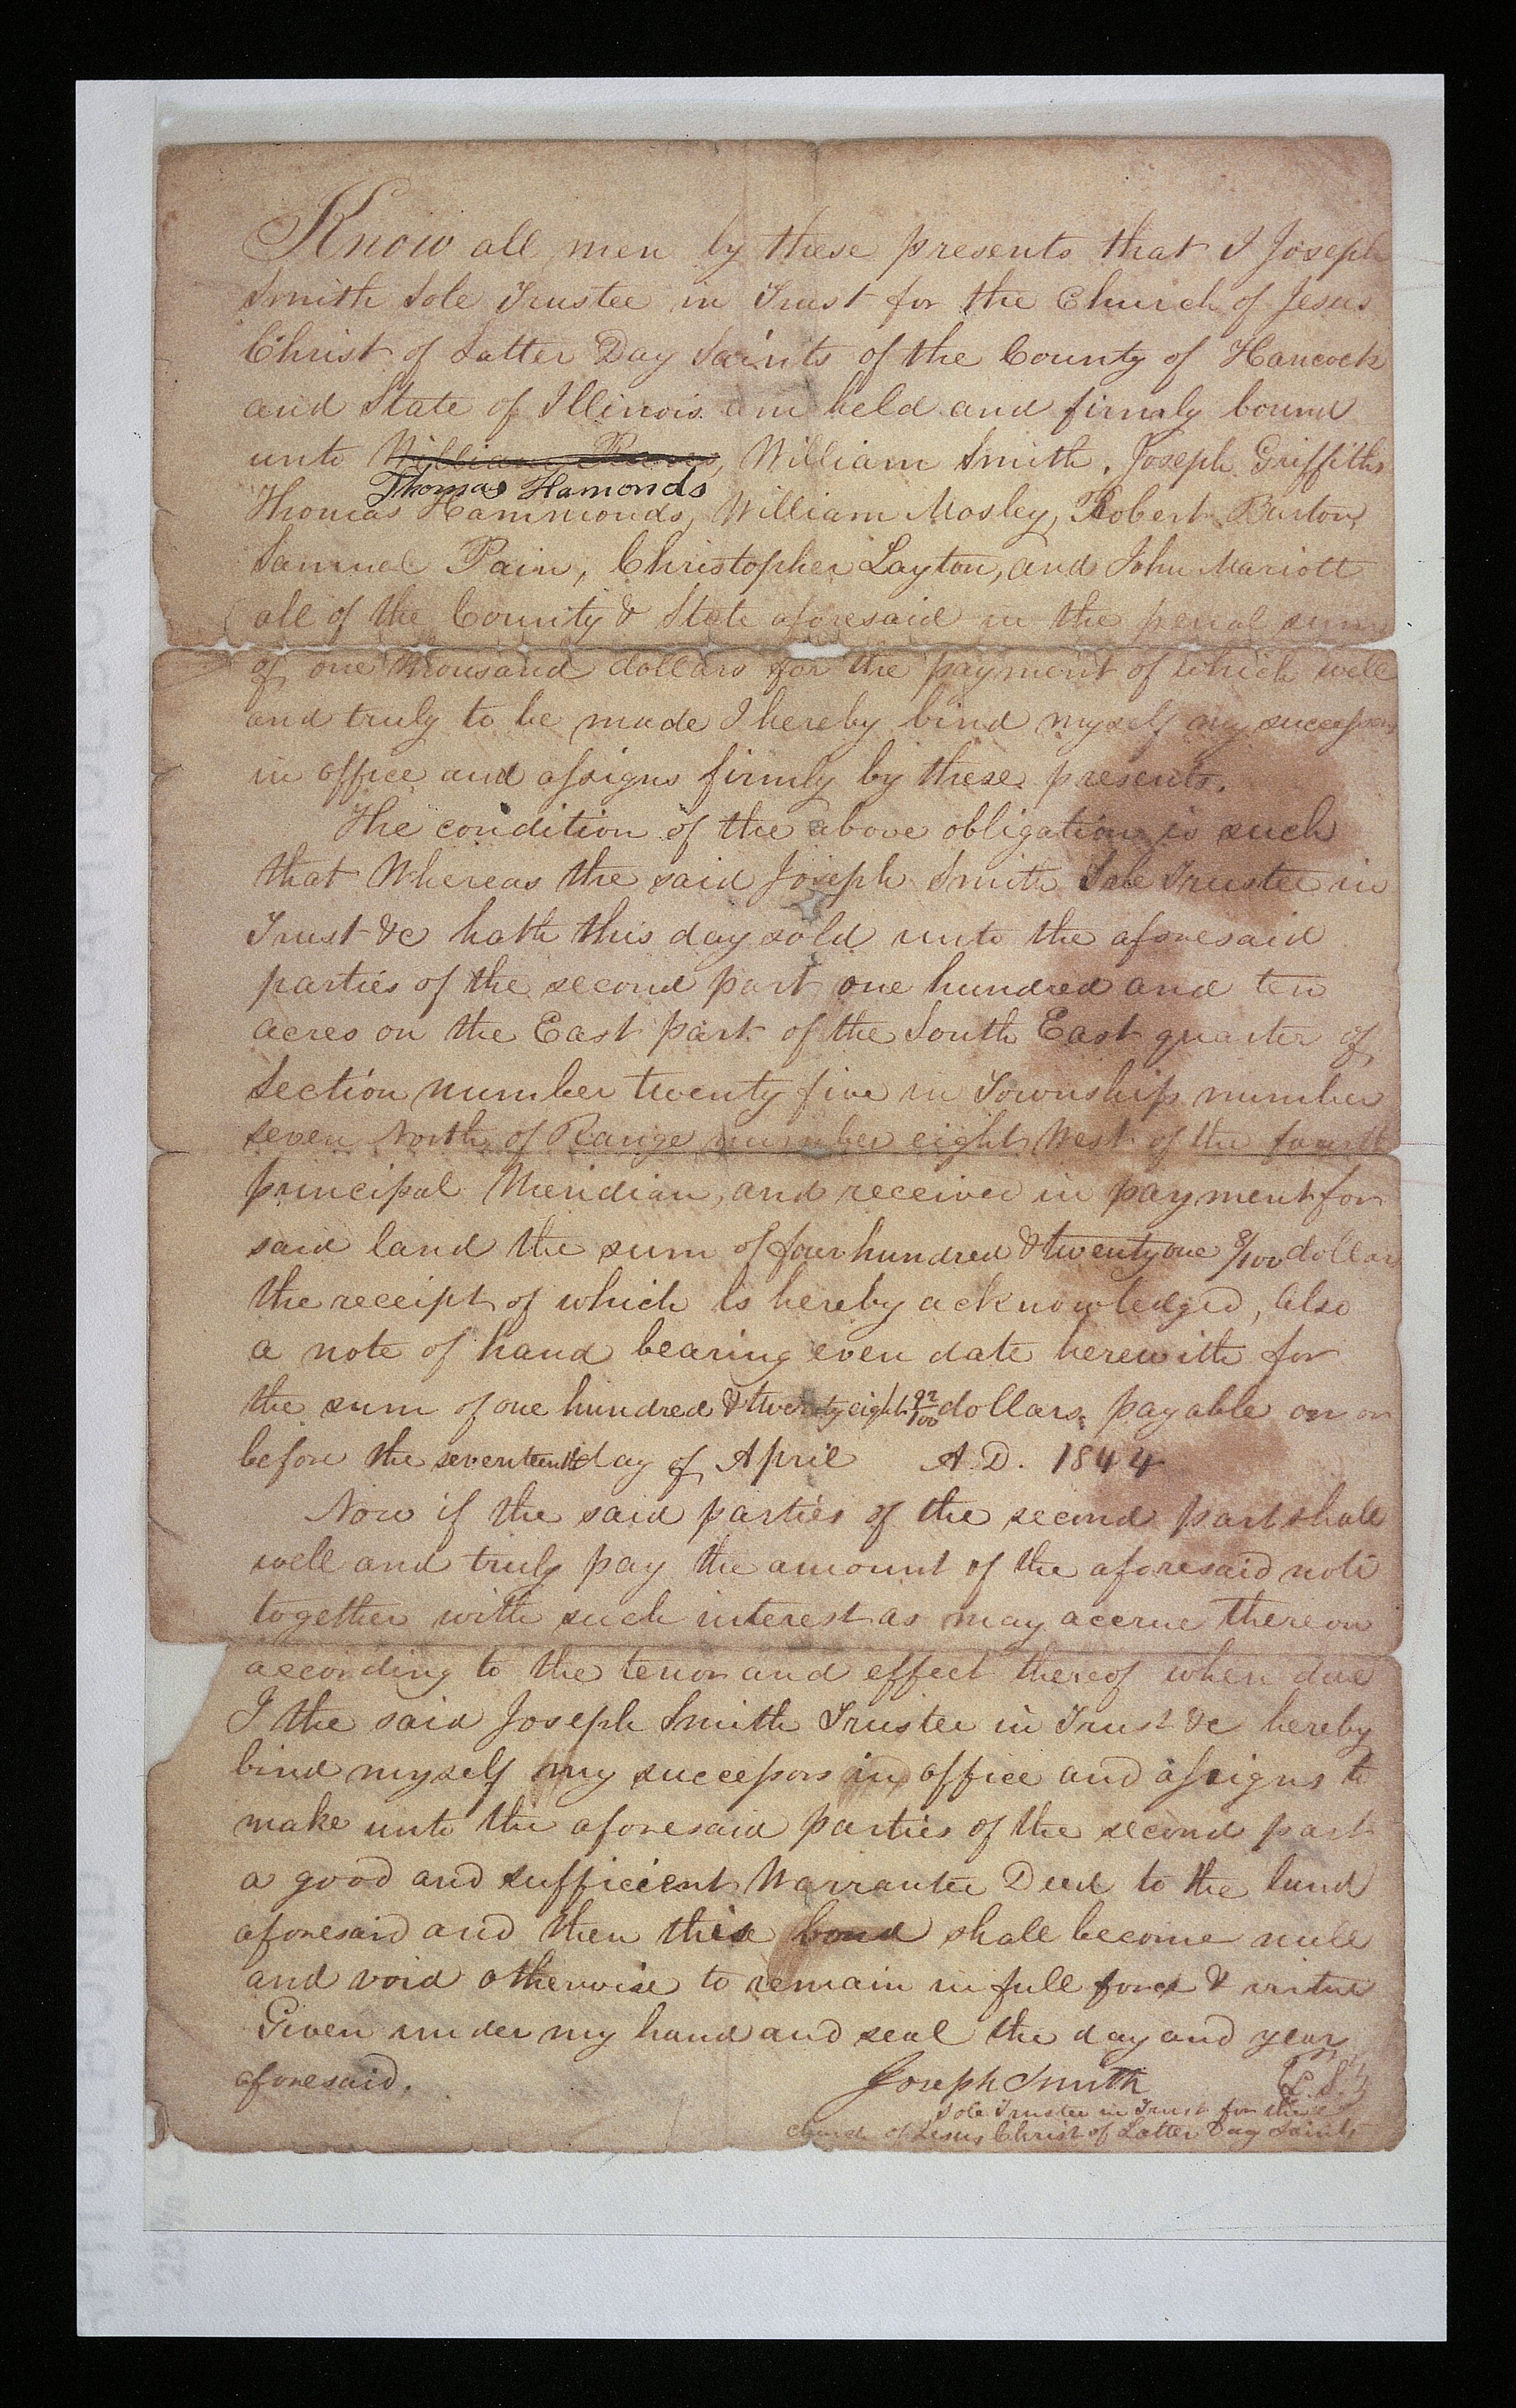 Know all men by these presents that I Joseph
Smith Sole Trustee in Trust for the Church of Jesus
Christ of Latter Day Saints of the County of Hancock
and State of Illinois am held and firmly bound
unto William Reeves, William Smith, Joseph Griffiths
Thomas Hamonds
Thomas Hammonds, William Mosley, Robert Burton,
Samuel Pain, Christopher Layton, and John Mariott
all of the County & State aforesaid in the penal sum
of one thousand dollars for the payment of which well
and truly to be made I hereby bind myself my successors
in office and assigns firmly by these presents.
The condition of the above obligation is such
that Whereas the said Joseph Smith Sole Trustee in
Trust &c hath this day sold unto the aforesaid
parties of the second part one hundred and ten
acres on the East part of the South East quarter of
Section number twenty five in Township number
seven North of Range number eight West of the fourth
principal Meridian, and received in payment for
said land the sum of four hundred & twenty one 8/100 dollars
the receipt of which is hereby acknowledged, Also
a note of hand bearing even date herewith for
the sum of one hundred & twenty eight 92/100 dollars, payable on or
before the seventeenth day of April A.D. 1844
Now if the said parties of the second part shall
well and truly pay the amount of the aforesaid note
together with such interest as may accrue thereon
according to the tenor and effect thereof when due
I the said Joseph Smith Trustee in Trust &c hereby
bind myself my successors in office and assigns to
make unto the aforesaid parties of the second part
a good and sufficient Warrantee Deed to the land
aforesaid and then this bond shall become null
and void otherwise to remain in full force & virtue
Given under my hand and seal the day and year
aforesaid. Joseph Smith L.S.
Sole Trustee in Trust for the
Church of Jesus Christ of Latter Day Saints